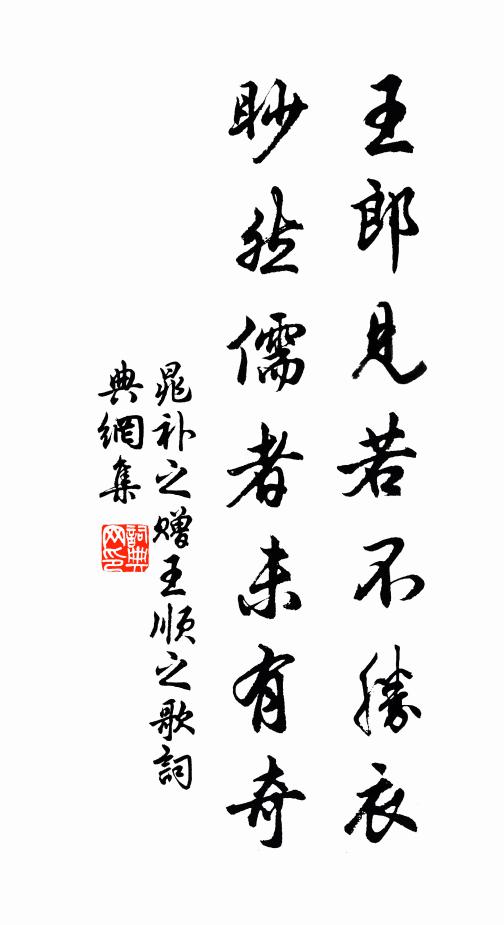 王郎見若不勝衣
眇然儒者未有奇
晁补之赠王順之歌詞
典網集
詞典
网印